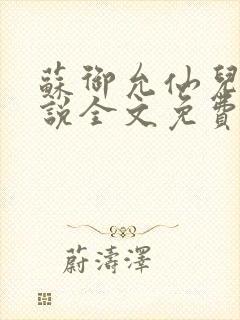 蘇御允仙兒
說全文免費
蔚濤澤